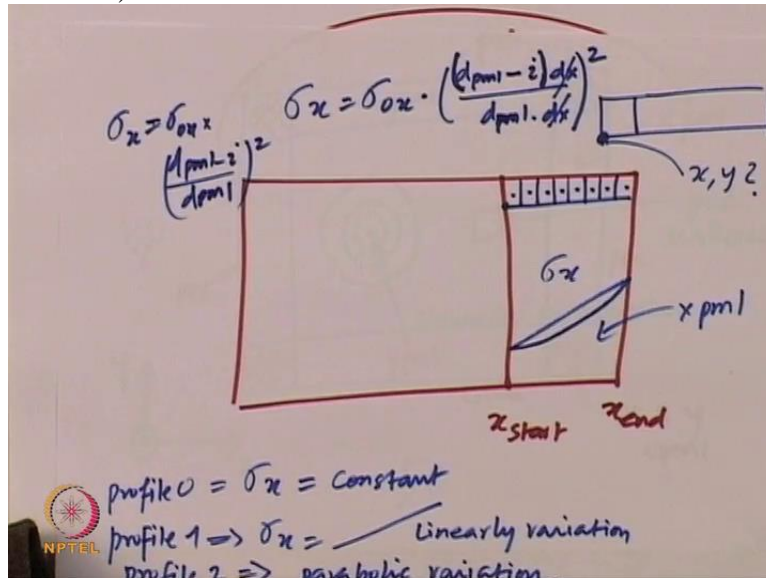 σx = σ0x ×
(dpml-i / dpml)²
σx = σ0x · ((dpml - i) dx / dpml · dx)²
x, y ?
σx
x pml
x start
x end
profile 0 = σx = Constant
profile 1 => σx = Linearly variation
profile 2 => parabolic variation
NPTEL